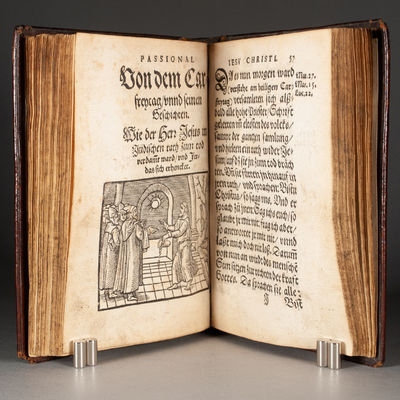 PASSIONAL
Von dem Car
freytag/vnnd seinen
Geschichten.
Wie der Herr Jesus im
Jüdischen rath zum tod
verdampt ward/vnd Ju-
das sich erhencket.
IESV CHRISTI. 57
DA es nun morgen ward
verstehe am heiligen Car-
freytag
versamleten sich alß-
bald alle hohe Priester/Schrifft
gelerten die eltesten des volcks/
darzu der gantzen samlung/
vnd hielten ein rath wider Je-
sum/auff dz sie jn zum tod bräch
ten. Vnd sie füreten jn hinauf in
jren rath/vnd sprachen: Bistu
Christus/so sags vns. Vnd er
sprach zů jnen: Sag ichs euch/so
glaubt jr mir nit/frag ich aber/
so antwortet jr mir nit/vnnd
laßt mich doch nit loß. Darum
von nun an wirdt des menschē
Sun sitzen zur rechten der krafft
Gottes. Da sprachen sie alle:
Bist
Mat. 27.
Mar. 15.
Luc. 22.